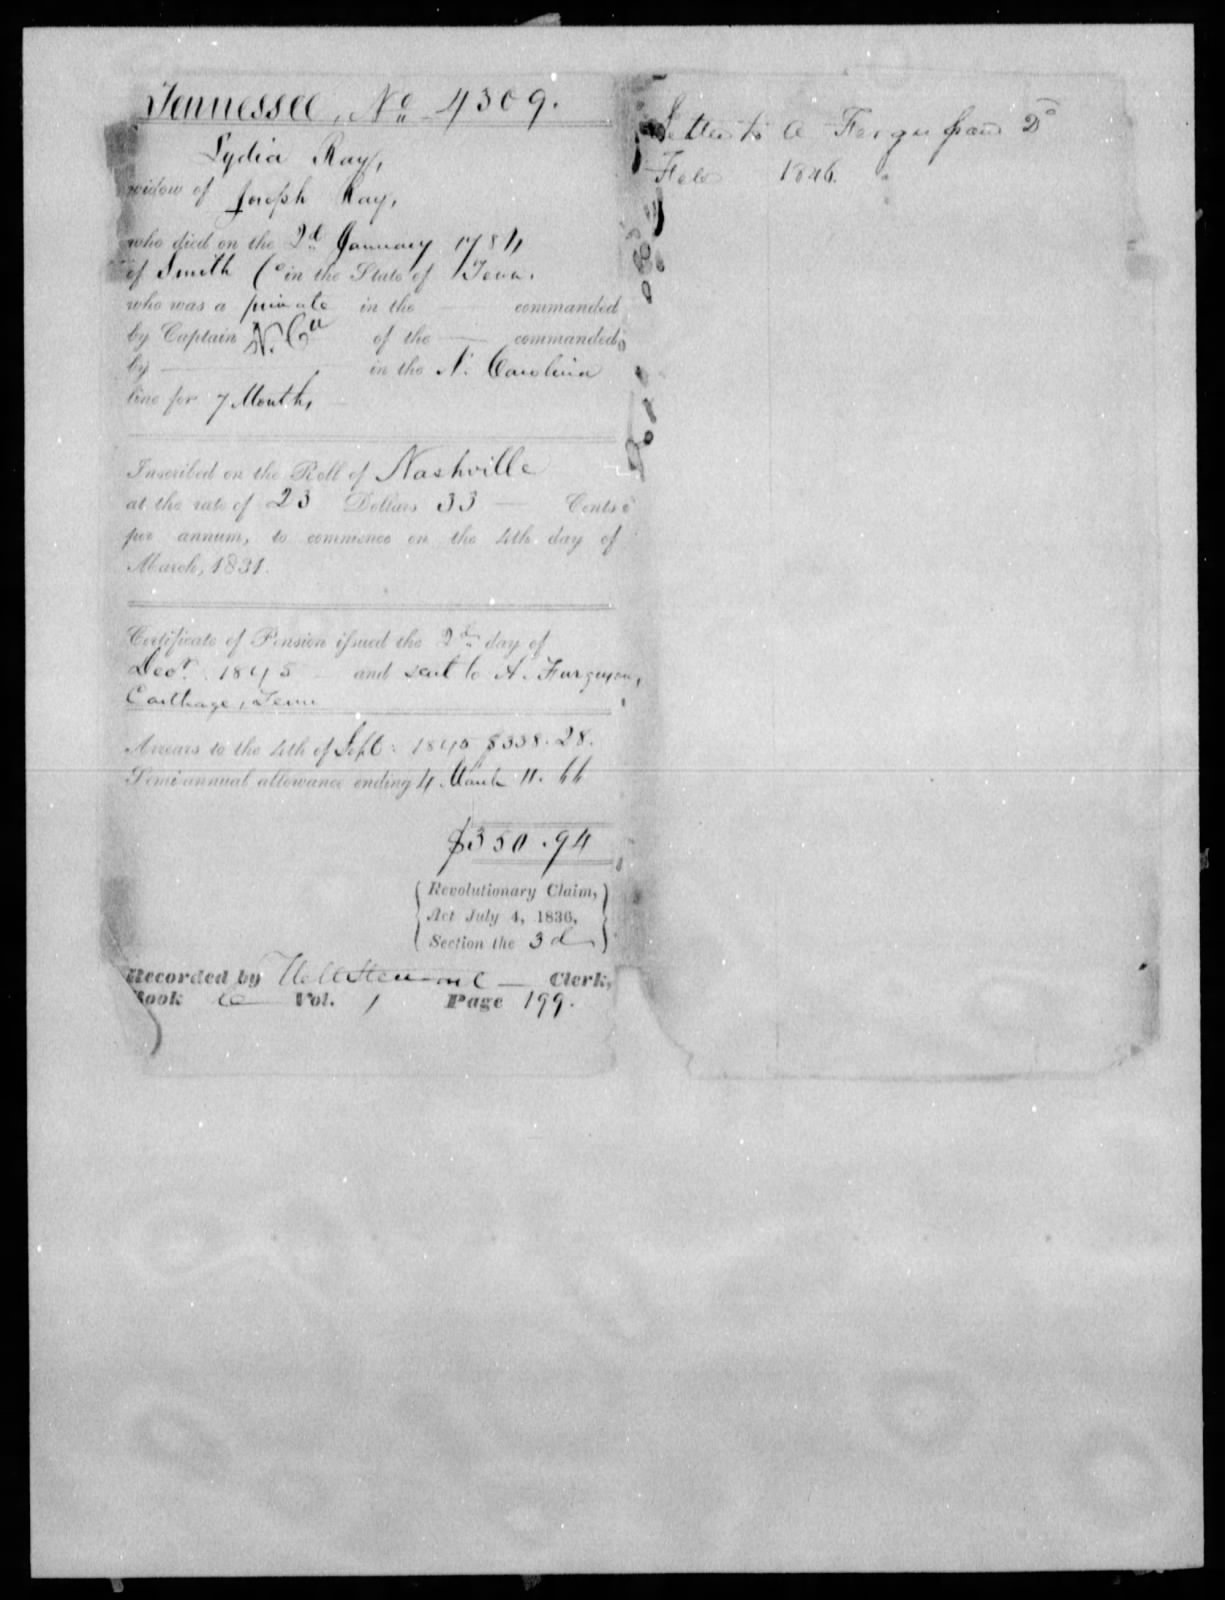 Tennessee, No 4309.
Lydia Ray,
widow of Joseph Ray,
who died on the 2d January 1784
of Smith Co in the State of Tenn.
who was a private in the — commanded
by Captain of the — commanded
by — in the N. Carolina
line for 7 Months,
Inscribed on the Roll of Nashville
at the rate of 23 Dollars 33 — Cents
per annum, to commence on the 4th day of
March, 1831.
Certificate of Pension issued the day of
1845 and sent to A. Furguson,
Carthage, Tenn
Arrears to the 4th of Sept: 1845 $338.28.
Semi-annual allowance ending 4 March 11.66
$350.94
Revolutionary Claim,
Act July 4, 1836,
Section the 3d
Recorded by Clerk,
Book Vol. 1 Page 199.
Letter to A Ferguson
Feb 1846.